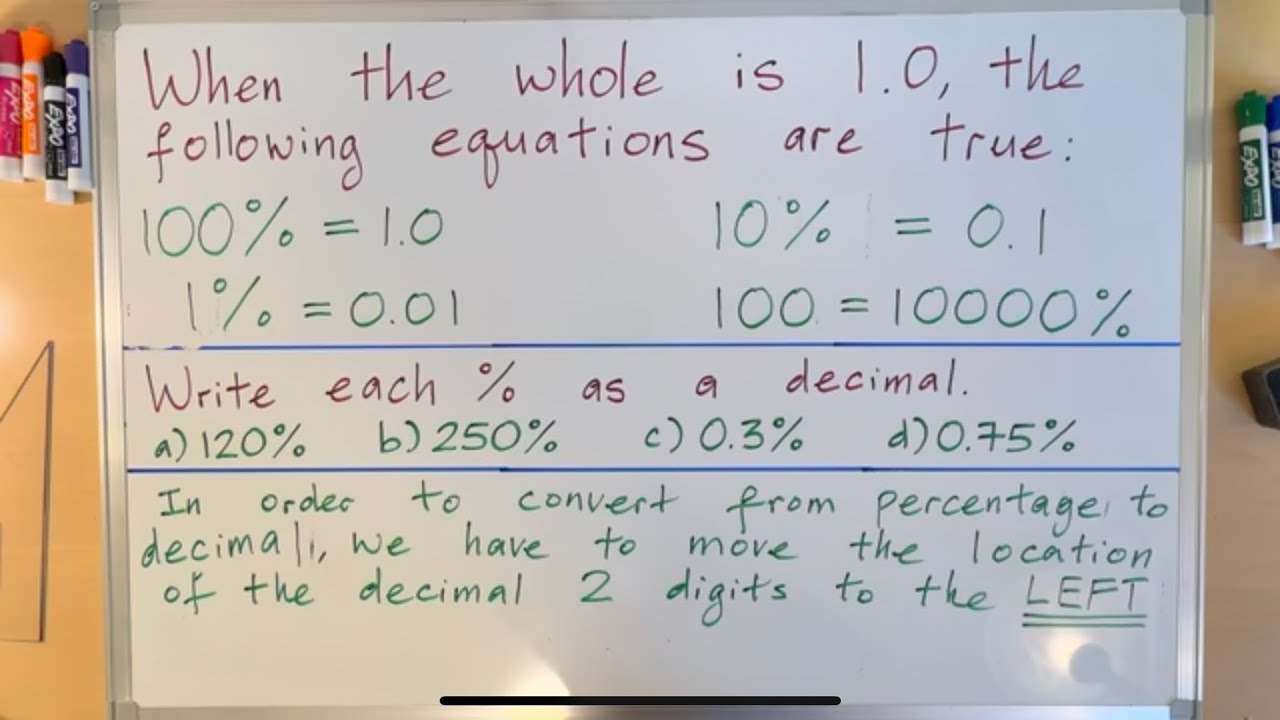 When the whole is 1.0, the
following equations are true:
100% = 1.0 10% = 0.1
1% = 0.01 100 = 10000%
Write each % as a decimal.
a) 120% b) 250% c) 0.3% d) 0.75%
In order to convert from percentage to
decimal, we have to move the location
of the decimal 2 digits to the LEFT
EXPO
EXPO
EXPO
EXPO
EXPO